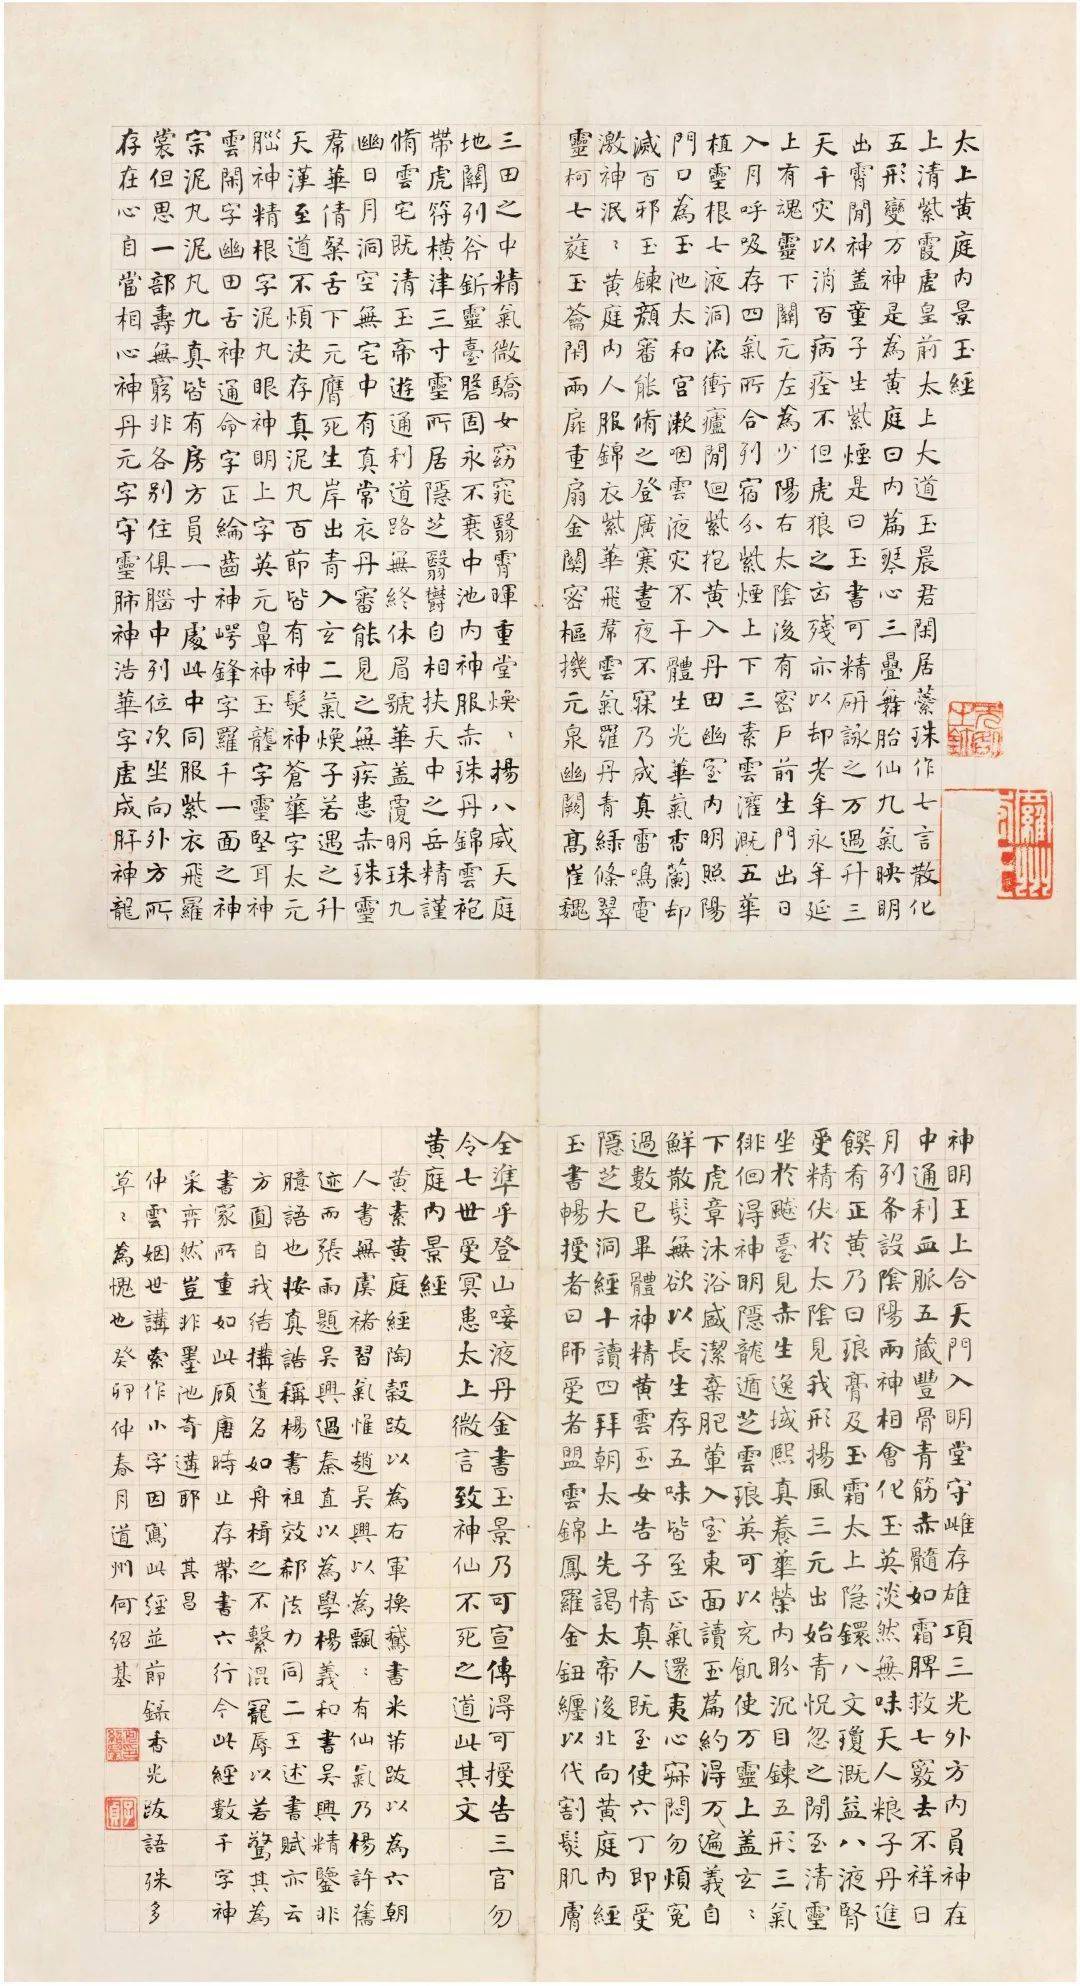 太上黄庭内景玉經
上清紫霞虛皇前太上大道玉晨君閑居蘂珠作七言散化
五形變万神是為黄庭曰内篇琴心三疊舞胎仙九氣映明
出霄閒神盖童子生紫煙是曰玉書可精研詠之万過升三
天千灾以消百病痊不但虎狼之凶殘亦以却老年永年延
上有魂靈下關元左為少陽右太陰後有密戸前生門出日
入月呼吸存四氣所合列宿分紫煙上下三素雲灌溉五華
植靈根七液洞流衝廬閒迴紫抱黄入丹田幽室内明照陽
門口為玉池太和宫漱咽雲液灾不干體生光華氣香蘭却
滅百邪玉鍊顔審能脩之登廣寒晝夜不寐乃成真雷鳴電
激神泯〻黄庭内人服錦衣紫華飛帬雲氣羅丹青緑條翠
靈柯七蕤玉籥閇兩扉重扇金關密樞機元泉幽闕高崔巍
三田之中精氣微驕女窈窕翳霄暉重堂煥〻揚八威天庭
地關列斧釿靈臺磐固永不衰中池内神服赤珠丹錦雲袍
帶虎符横津三寸靈所居隱芝翳鬱自相扶天中之岳精謹
脩雲宅既清玉帝遊通利道路無終休眉號華盖覆明珠九
幽日月洞空無宅中有真常衣丹審能見之無疾患赤珠靈
帬華倩粲舌下元膺死生岸出青入玄二氣煥子若遇之升
天漢至道不煩決存真泥丸百節皆有神髮神蒼華字太元
腦神精根字泥丸眼神明上字英元鼻神玉壟字靈堅耳神
雲閑字幽田舌神通命字正綸齒神崿鋒字羅千一面之神
宗泥丸泥丸九真皆有房方員一寸處此中同服紫衣飛羅
裳但思一部壽無窮非各别住俱腦中列位次坐向外方所
存在心自當相心神丹元字守靈肺神浩華字虛成肝神龍
神明王上合天門入明堂守雌存雄項三光外方内員神在
中通利血脈五藏豐骨青筋赤髓如霜脾救七竅去不祥日
月列布設陰陽兩神相會化玉英淡然無味天人粮子丹進
饌有正黄乃曰琅膏及玉霜太上隱鐶八文瓊溉益八液腎
受精伏於太陰見我形揚風三元出始青怳忽之閒至清靈
坐於飈臺見赤生逸域熙真養華榮内盼沉目鍊五形三氣
徘徊得神明隱龍遁芝雲琅英可以充飢使万靈上盖玄〻
下虎章沐浴盛潔棄肥葷入室東面讀玉篇約得万遍義自
鮮散髮無欲以長生存五味皆至正氣還夷心寂悶勿煩冤
過數已畢體神精黄雲玉女告子情真人既至使六丁即受
隱芝大洞經十讀四拜朝太上先謁太帝後北向黄庭内經
玉書暢授者曰師受者盟雲錦鳳羅金鈕纏以代割髮肌膚
全準乎登山唼液丹金書玉景乃可宣傳得可授告三官勿
令七世受冥患太上微言致神仙不死之道此其文
黄庭内景經
黄素黄庭經陶穀跋以為右軍換鵝書米芾跋以為六朝
人書無虞褚習氣惟趙吳興以為飄〻有仙氣乃楊許舊
迹而張雨題吳興過秦直以為學楊羲和書吳興精鑒非
臆語也按真誥稱楊書祖效郗法力同二王述書賦亦云
方圓自我結搆遺名如舟楫之不繫混寵辱以若驚其為
書家所重如此顧唐時止存帶書六行今此經數千字神
采弈然豈非墨池奇遘耶　其昌
仲雲姻世講索作小字因寫此經並節錄香光跋語殊多
草〻為愧也癸卯仲春月道州何紹基